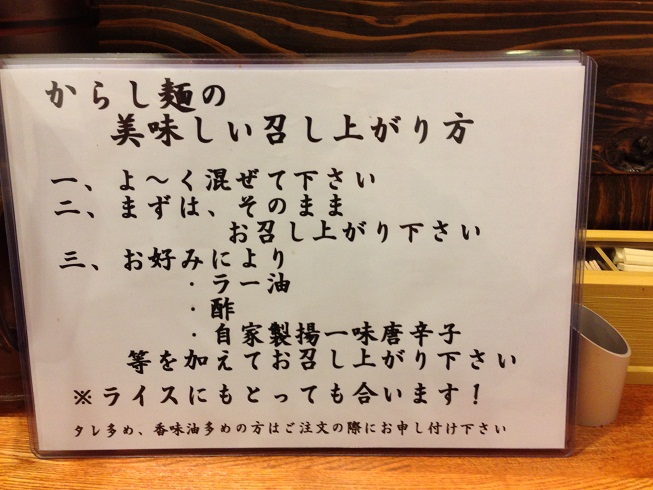 からし麺の
美味しい召し上がり方
一、よ～く混ぜて下さい
二、まずは、そのまま
お召し上がり下さい
三、お好みにより
・ラー油
・酢
・自家製揚一味唐辛子
等を加えてお召し上がり下さい
※ライスにもとっても合います!
タレ多め、香味油多めの方はご注文の際にお申し付け下さい